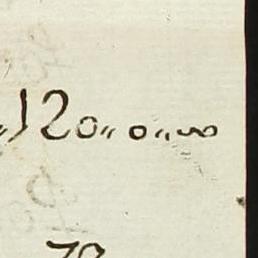 120〃 0〃 00
78